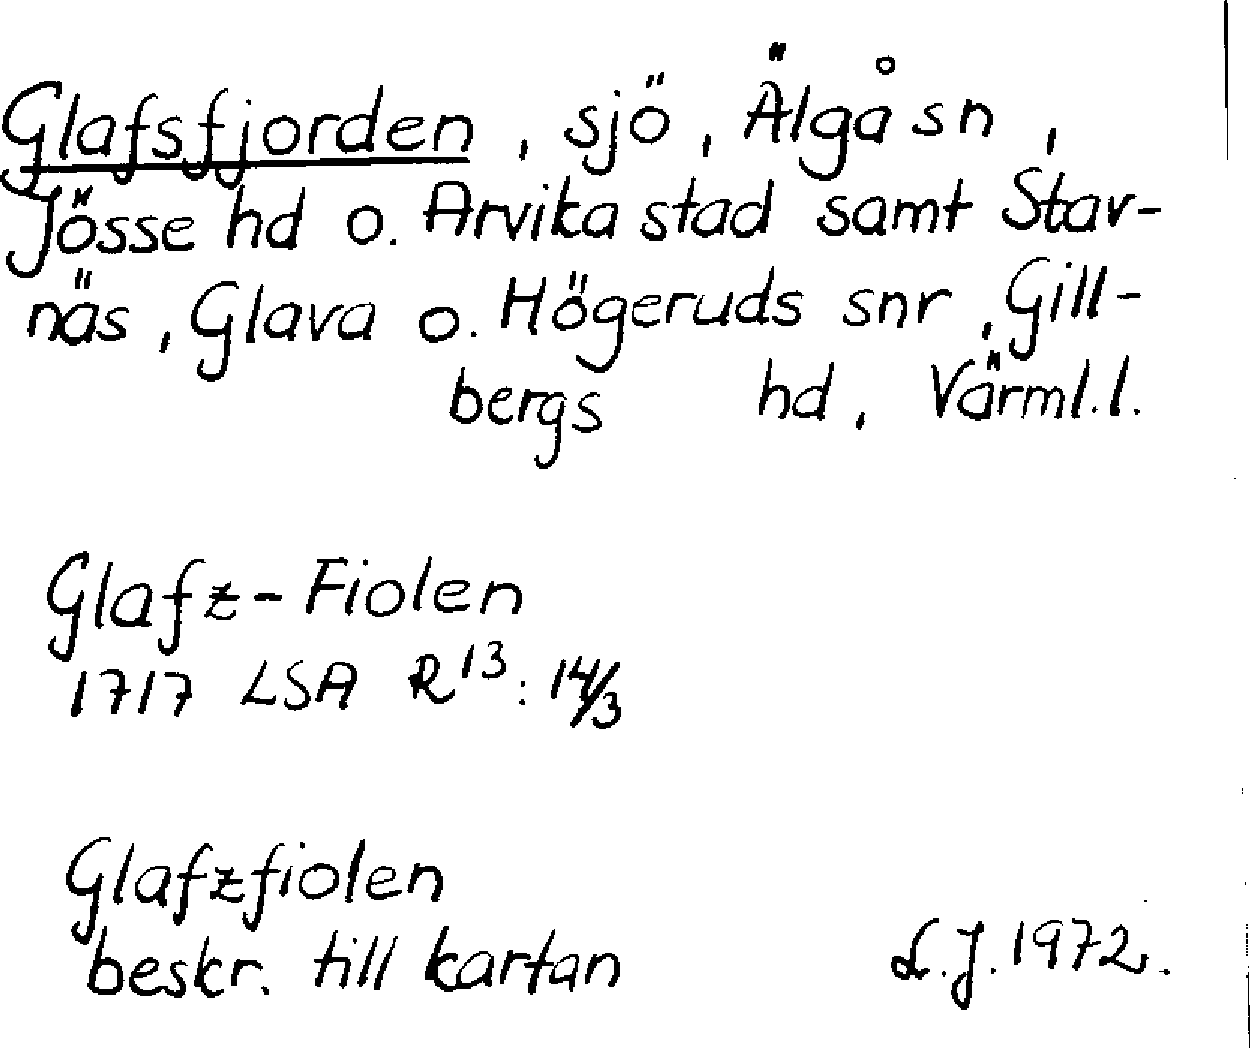 Glafsfjorden, sjö, Älgå sn,
Jösse hd o. Arvika stad samt Stav-
näs, Glava o. Högeruds snr, Gill-
bergs hd, Värml.l.
Glafz-Fiolen
1717 LSA R13:14/3
Glafzfiolen
beskr. till kartan
L.J. 1972.